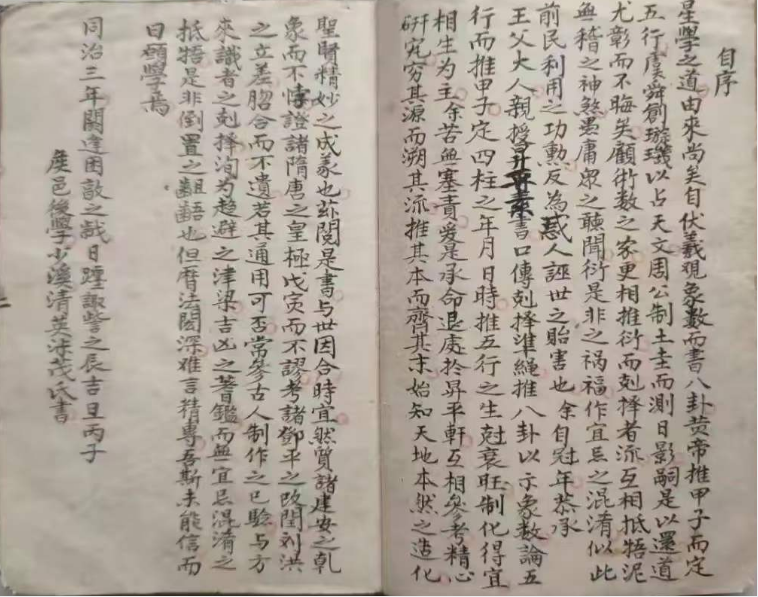 自序
星學之道由來尚矣自伏羲觀象數而書八卦黄帝推甲子而定
五行虞舜創璇璣以占天文周公制土圭而測日影嗣是以還道
尤彰而不晦矣顧術數之家更相推衍而剋擇者流互相抵牾泥
無稽之神煞愚庸眾之聽聞衍是非之禍福作宜忌之混淆似此
前民利用之功勳反為惑人誣世之貽害也余自冠年恭承
王父大人親授書口傳剋擇準繩推八卦以示象數論五
行而推甲子定四柱之年月日時推五行之生尅衰旺制化得宜
相生為主余苦無塞責爰是承命退處於昇平軒互相參考精心
研究窮其源而溯其派推其本而齊其末始知天地本然之造化
聖賢精妙之成義也茲閱是書与世因合時宜然質諸建安之乹
象而不悖證諸隋唐之皇極戊寅而不謬考諸鄧平之改閏刘洪
之立差脗合而不遺若其通用可否常參古人制作之已驗与方
來識者之剋擇洵为趨避之津梁吉凶之蓍鑑而無宜忌混淆之
抵牾是非倒置之齟齬也但曆法閎深难言精專吾斯未能信而
曰願學焉
同治三年閼逢困敦之歲日躔諏訾之辰吉旦丙子
後學少溪清英氏書